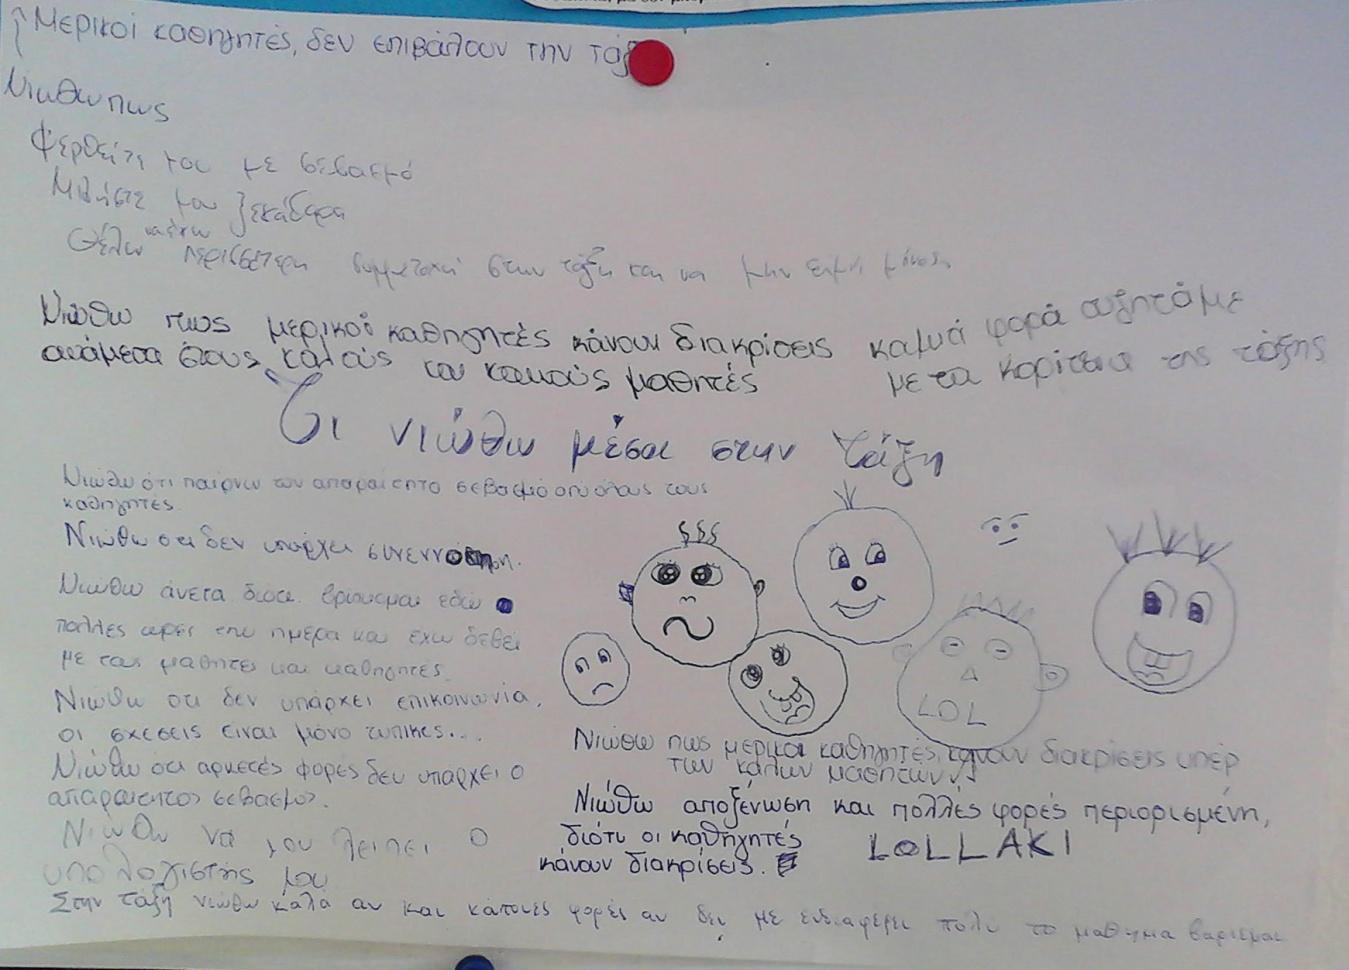 Μερικοί καθηγητές, δεν επιβάλουν την τάξ
Νιωθω πως
Φερθείτε μου με σεβασμό
Μιλήστε μου ξεκάθαρα
Θέλω να έχω περισσότερη συμμετοχή στην τάξη και να μην ειμαι μόνος
Νιώθω πως μερικοί καθηγητές κάνουν διακρίσεις
ανάμεσα στους καλούς και κακούς μαθητές
καμιά φορά συζητάμε
με τα κορίτσια της τάξης
Τι νιώθω μέσα στην τάξη
Νιώθω ότι παίρνω τον απαραίτητο σεβασμό από όλους τους
καθηγητές.
Νιώθω οτι δεν υπάρχει συνεννοηση.
Νιώθω άνετα διοτι βρισκομαι εδώ
πολλές ωρες την ημέρα και έχω δεθεί
με τους μαθητες και καθηγητές.
Νιώθω οτι δεν υπάρχει επικοινωνία,
οι σχεσεις ειναι μόνο τυπικες...
Νιώθω ότι αρκετές φορές δεν υπάρχει ο
απαραιτητος σεβασμος.
Νιώθω να μου λειπει ο
υπολογιστής μου
LOL
Νιώθω πως μερικοι καθηγητές, κανουν διακρίσεις υπέρ
των καλων μαθητων!
Νιώθω αποξένωση και πολλές φορές περιορισμένη,
διότι οι καθηγητές
κάνουν διακρίσεις.
LOLLAKI
Στην τάξη νιώθω καλα αν και κάποιες φορές αν δεν με ενδιαφερει πολυ το μαθημα βαριεμαι